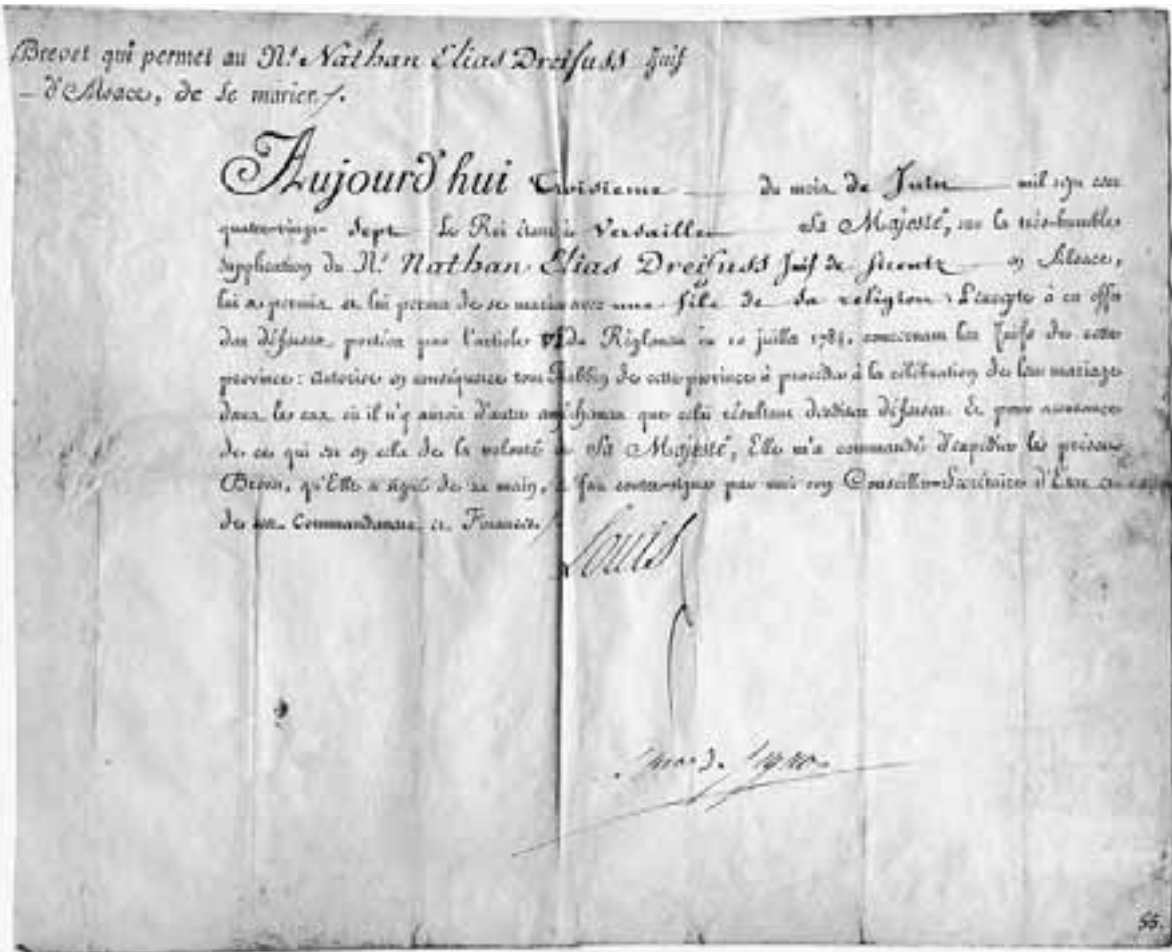 Brevet qui permet au Né. Nathan Elias Dreifuss Juif
d'Alsace, de se marier /.
Aujourd'hui troisieme du mois de Juin mil sept cent
quatre-vingt sept Le Roi étant à Versailles Sa Majesté, sur la très-humble
supplication du Né. Nathan Elias Dreifuss Juif de en Alsace,
lui a permis et lui permet de se marier avec une fille de sa religion L'exempte à cet effet
des défenses portées par l'article VI du Réglement du 10 juillet 1784. concernant les Juifs de cette
province: Autorise en conséquence tout Rabbin de cette province à procéder à la célébration de leur mariage
dans les cas où il n'y auroit d'autre empêchement que celui résultant desdites défenses. Et pour assurance
de ce qui est en cela de la volonté de Sa Majesté, Elle m'a commandé d'expédier le présent
Brevet, qu'Elle a signé de sa main, & fait contre-signer par moi son Conseiller-Secrétaire d'Etat et
de ses Commandemens et Finances.
Louis
55.